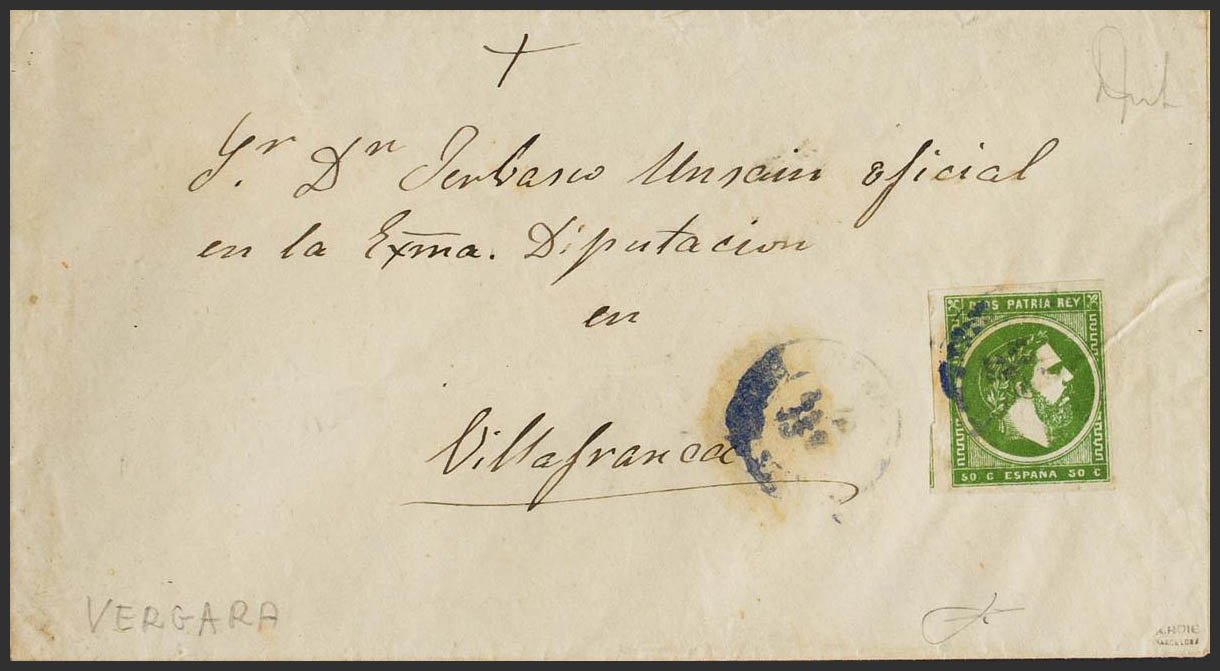 Sr. Dn Jerbasio Unsain oficial
en la Exma. Diputacion
en
Villafranca
DIOS PATRIA REY
50 C ESPAÑA 50 C
VERGARA
BARCELONA